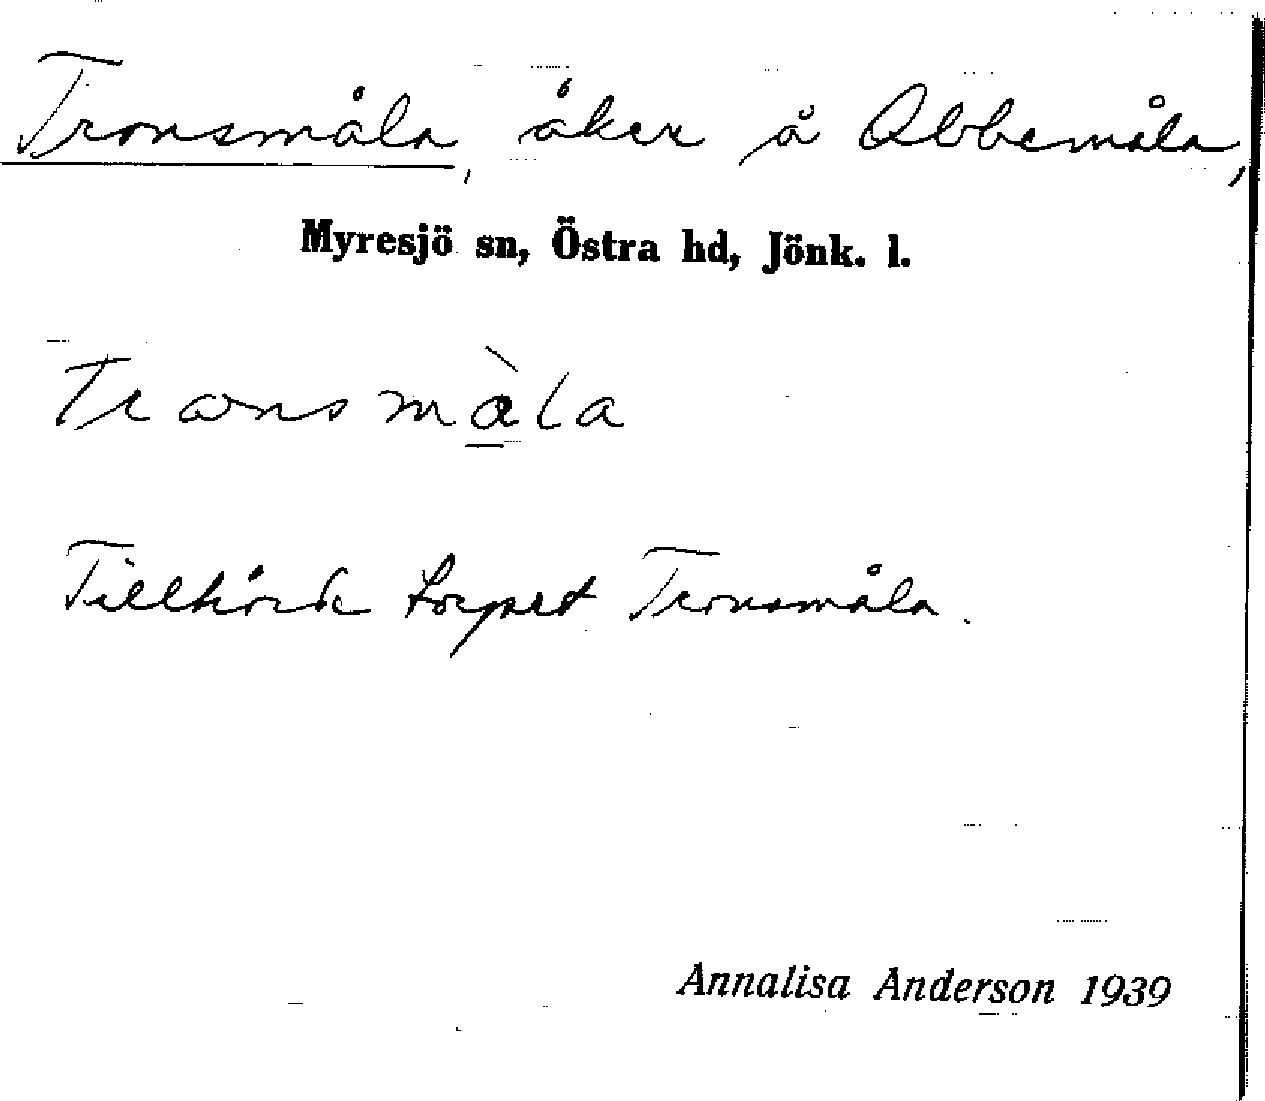 Tronsmåla, åker å Abbemåla,
Myresjö sn, Östra hd, Jönk. l.
Tillhörde torpet Tronsmåla.
Annalisa Anderson 1939